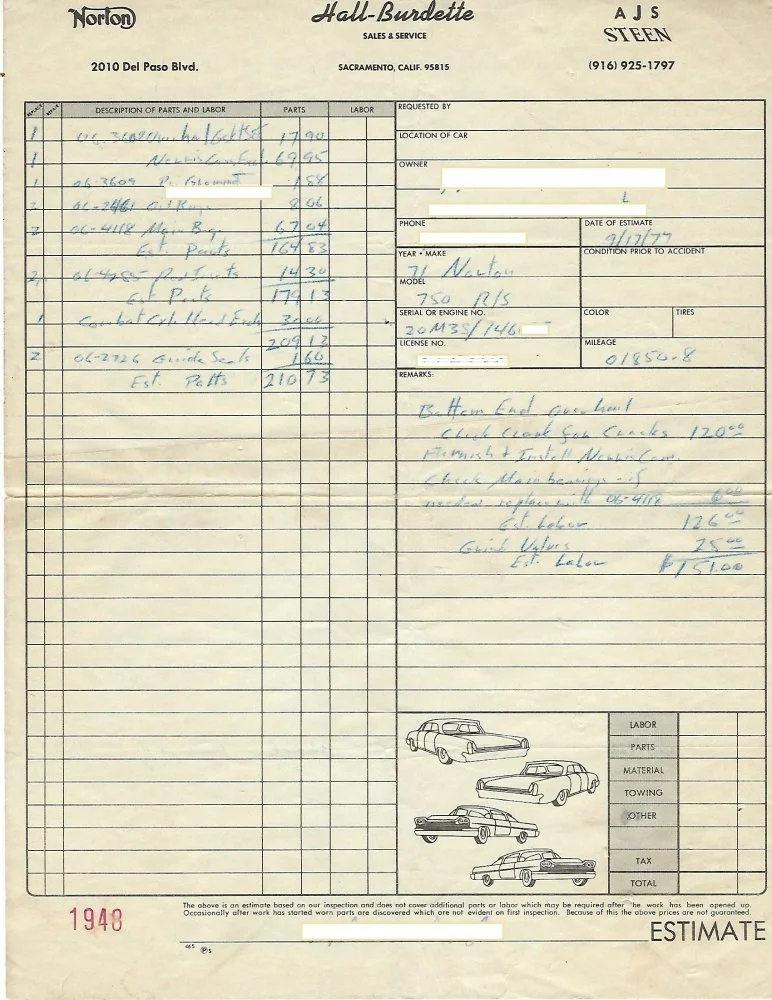 Norton
Hall-Burdette
SALES & SERVICE
AJS
STEEN
2010 Del Paso Blvd.
SACRAMENTO, CALIF. 95815
(916) 925-1797
DESCRIPTION OF PARTS AND LABOR PARTS LABOR
1 17 90
1 69 95
1 06-3609 1 88
2 Oil 8 06
2 06-4118 Main Brg. 67 04
Est. Parts 164 83
2 14 30
Est. Parts 179 13
1 Combat Cyl. Head Exch 30 00
209 13
2 06-2726 Guide Seals 1 60
Est. Parts 210 73
REQUESTED BY
LOCATION OF CAR
OWNER
L
PHONE
DATE OF ESTIMATE
9/17/77
YEAR • MAKE
71 Norton
CONDITION PRIOR TO ACCIDENT
MODEL
750 R/S
SERIAL OR ENGINE NO.
20M3S/146
COLOR
TIRES
LICENSE NO.
MILEAGE
01850.8
REMARKS:
Bottom End Overhaul
Check Crank for Cracks 120.00
Furnish & Install Norris Cam.
Check Main bearings - if
needed replace with 06-4118 6.00
Est. Labor 126.00
Grind Valves 25.00
Est. Labor $151.00
LABOR
PARTS
MATERIAL
TOWING
OTHER
TAX
TOTAL
1948
The above is an estimate based on our inspection and does not cover additional parts or labor which may be required after the work has been opened up.
Occasionally after work has started worn parts are discovered which are not evident on first inspection. Because of this the above prices are not guaranteed.
ESTIMATE
465 Ps